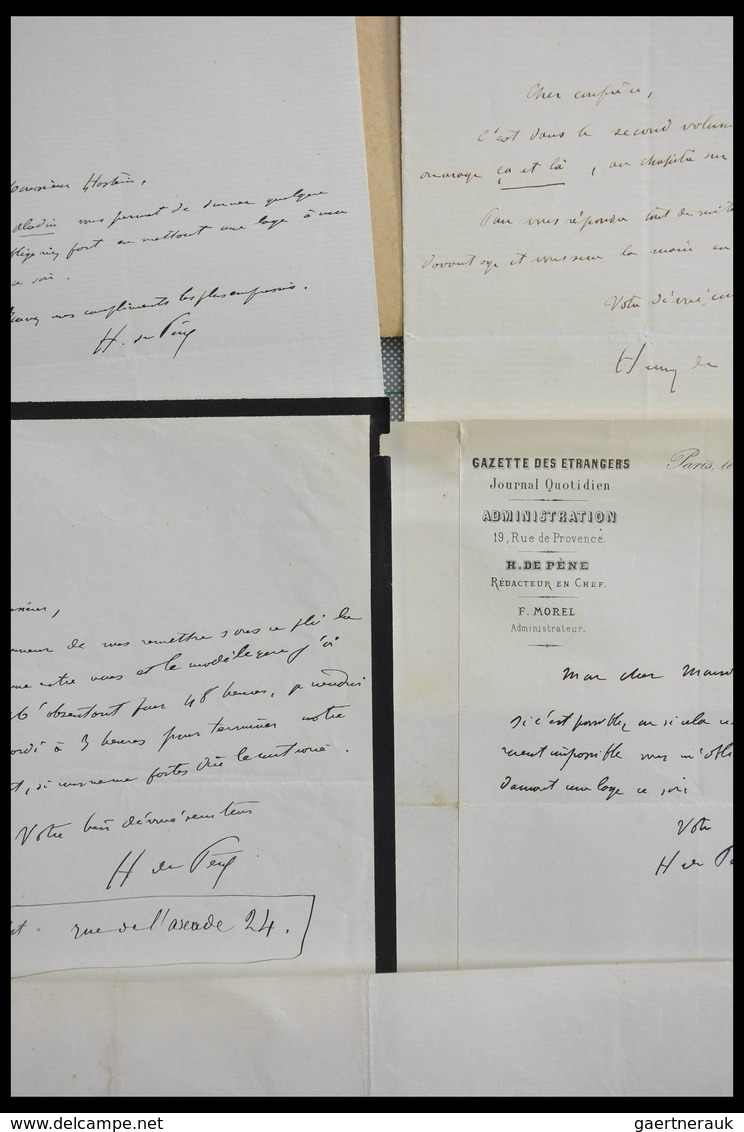 Monsieur Hostein,
vous permet de donner quelque
fort en mettant une loge à ma
ce soir.
mes compliments les plus empressés.
H. de Pène
Cher confrère,
C'est dans le second volum
ouvrage ça et là, au chapitre sur
Pour vous répondre tout de suite
davantage et vous serre la main en
Votre dévoué con
Henry de
de vous remettre sous ce pli la
entre nous et le modèle que j'ai
M'absentant pour 48 heures, je viendrai
à 3 heures pour terminer notre
Votre bien dévoué serviteur
H de Pène
rue de l'arcade 24.
GAZETTE DES ETRANGERS
Journal Quotidien
ADMINISTRATION
19, Rue de Provence.
H. DE PÈNE
RÉDACTEUR EN CHEF.
F. MOREL
Administrateur.
Paris, le
Mon cher
si c'est possible, ou si cela
impossible vous m'obli
donnant une loge ce soir
Votre
H de Pè
gaertnerauk / DELCAMPE.NET